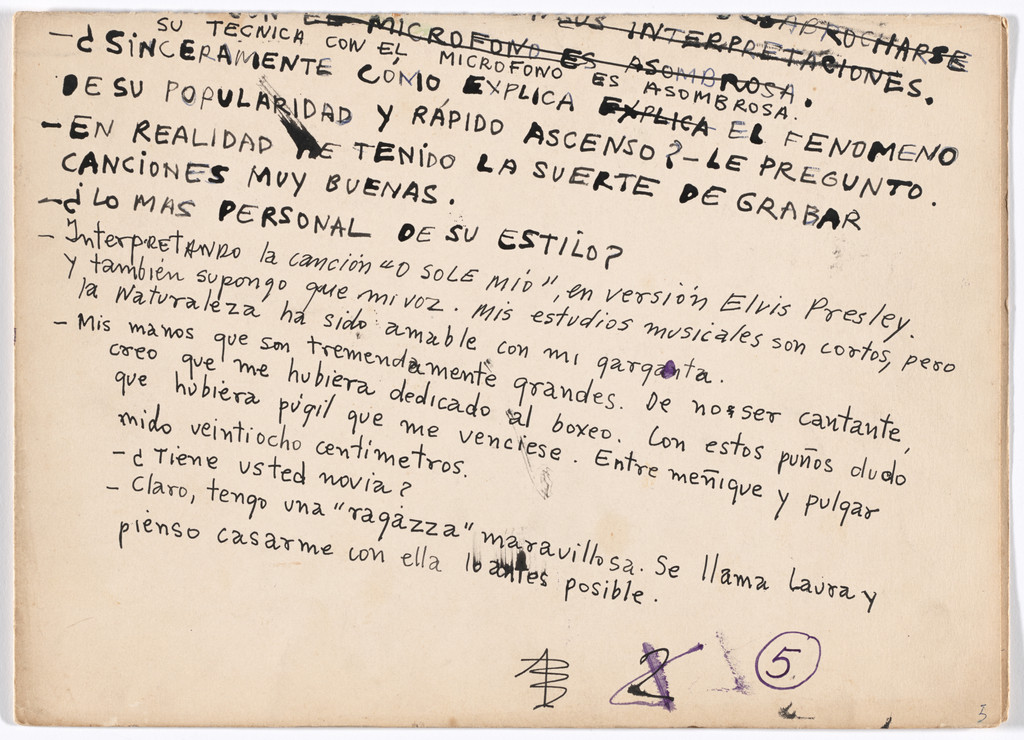 EL MICROFONO ES ASOMBROSA.
SUS INTERPRETACIONES.
SU TECNICA CON EL MICROFONO ES ASOMBROSA.
-¿SINCERAMENTE COMO EXPLICA EXPLICA EL FENOMENO
DE SU POPULARIDAD Y RÁPIDO ASCENSO?-LE PREGUNTO.
-EN REALIDAD HE TENIDO LA SUERTE DE GRABAR
CANCIONES MUY BUENAS.
-¿LO MAS PERSONAL DE SU ESTILO?
- InterpretANDO la canción "O SOLE MIÓ", en versión Elvis Presley.
Y también supongo que mi voz. Mis estudios musicales son cortos, pero
la Naturaleza ha sido amable con mi garganta.
- Mis manos que son tremendamente grandes. De no ser cantante,
creo que me hubiera dedicado al boxeo. Con estos puños dudo
que hubiera púgil que me venciese. Entre meñique y pulgar
mido veintiocho centímetros.
-¿Tiene usted novia?
- Claro, tengo una "ragázza" maravillosa. Se llama Laura y
pienso casarme con ella lo antes posible.
2 5.
5